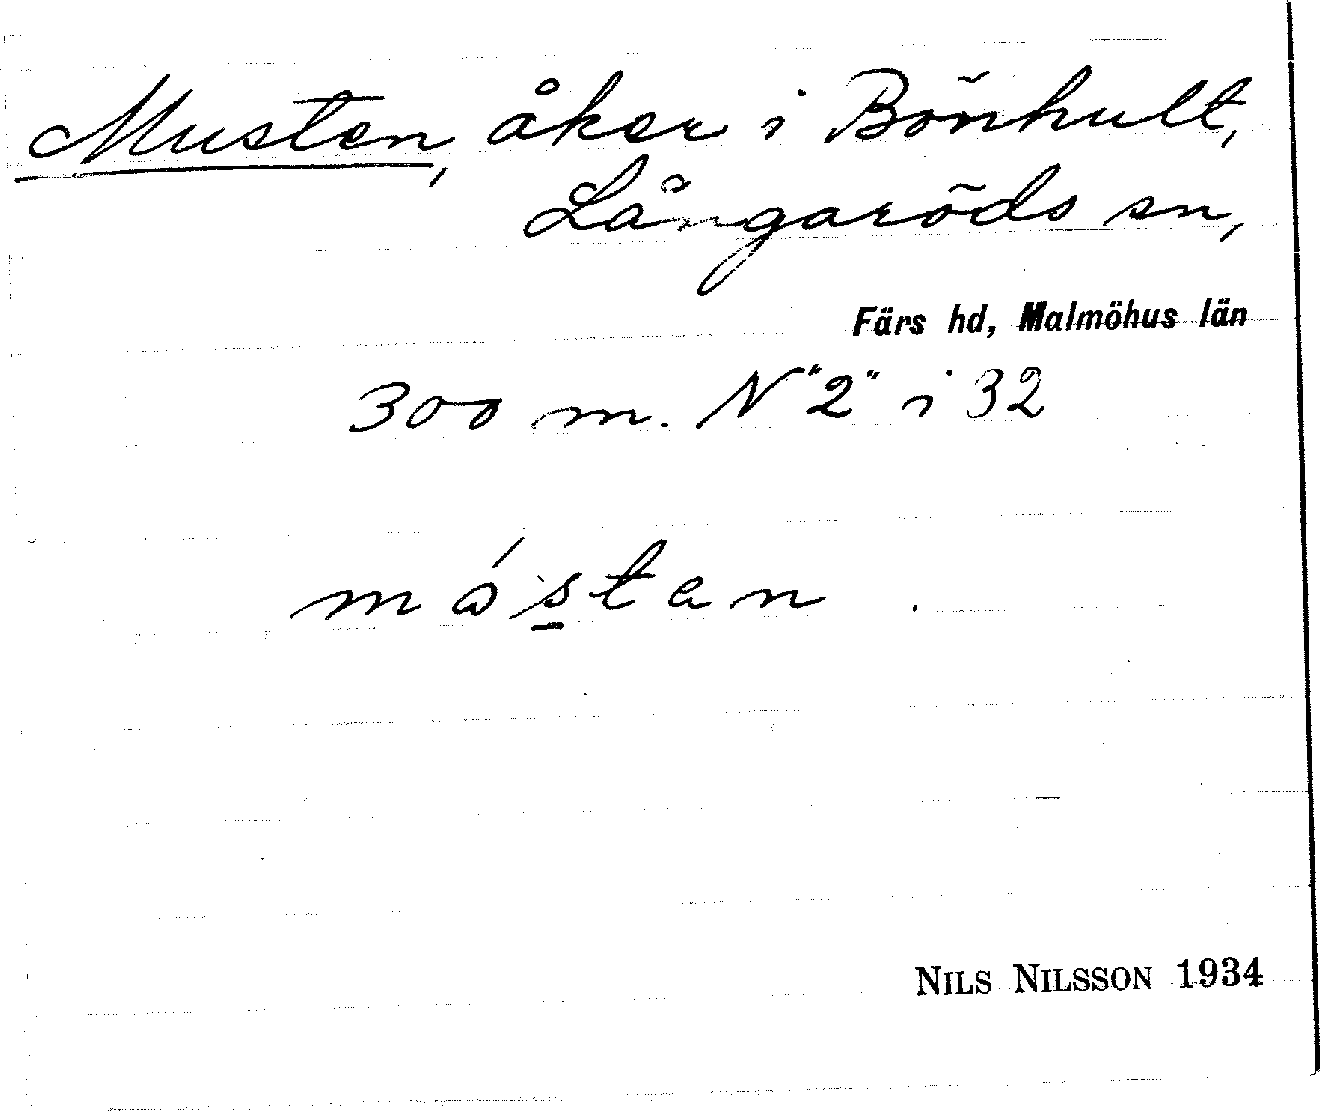 Musten, åker i Bönhult,
Långaröds sn,
Färs hd, Malmöhus län
300 m. N "2" i 32
NILS NILSSON 1934